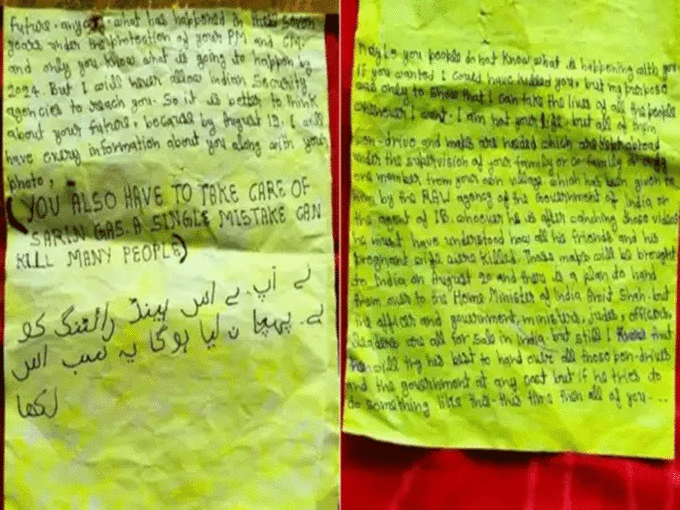 future. anyone. what has happened in these seven
years under the protection of your PM and CM.
and only you know what is going to happen by
2024. But I will never allow Indian Security
agencies to reach you. So it is better to think
about your future, because by August 13. I will
have every information about you along with your
photo,
(YOU ALSO HAVE TO TAKE CARE OF
SARIN GAS. A SINGLE MISTAKE CAN
KILL MANY PEOPLE)
نے آپ نے اس ہینڈ رائٹنگ کو
نے پہچان لیا ہوگا یہ سب اس
لکھا
Maybe you people do not know what is happening with you
if you wanted I could have killed you, but my purpose
was only to show that I can take the lives of all the people
whenever I want. I am not your life, but all of them
pen-drive and maps are needed which are kept abroad
under the supervision of your family or co-family or any
one member from your own village which has been given to
him by the RAW agency of the Government of India or
the agent of IB. whoever he is after catching those videos
he must have understood how all his friends and his
pregnant wife were killed. Those maps will be brought
to India on August 20 and there is a plan to hand
them over to the Home Minister of India Amit Shah. but
the officer and government, ministers, judge, officers,
leaders are all for sale in India. but still I that
will try his best to hand over all those pen-drives
and the government at any cost but if he tries do
do something like this this time then all of you ....